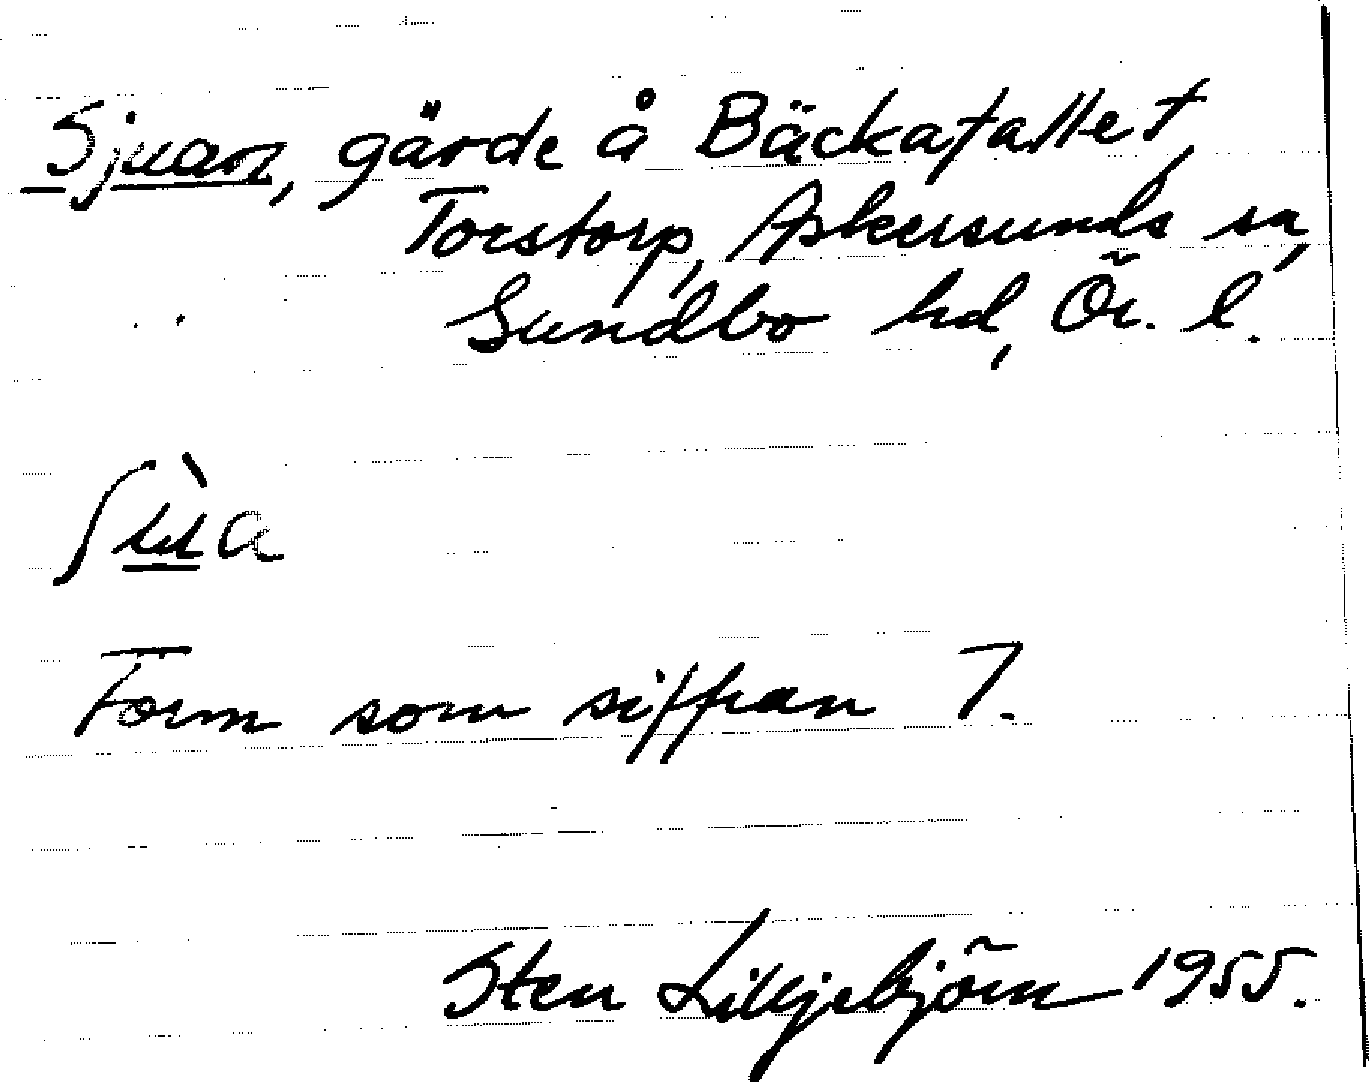 Sjuan, gärde å Bäckafallet,
Torstorp, Askersunds sn,
Sundbo hd, Ör. l.
ʃu̠̇̀a
Form som siffran 7.
Sten Liljebjörn 1955.